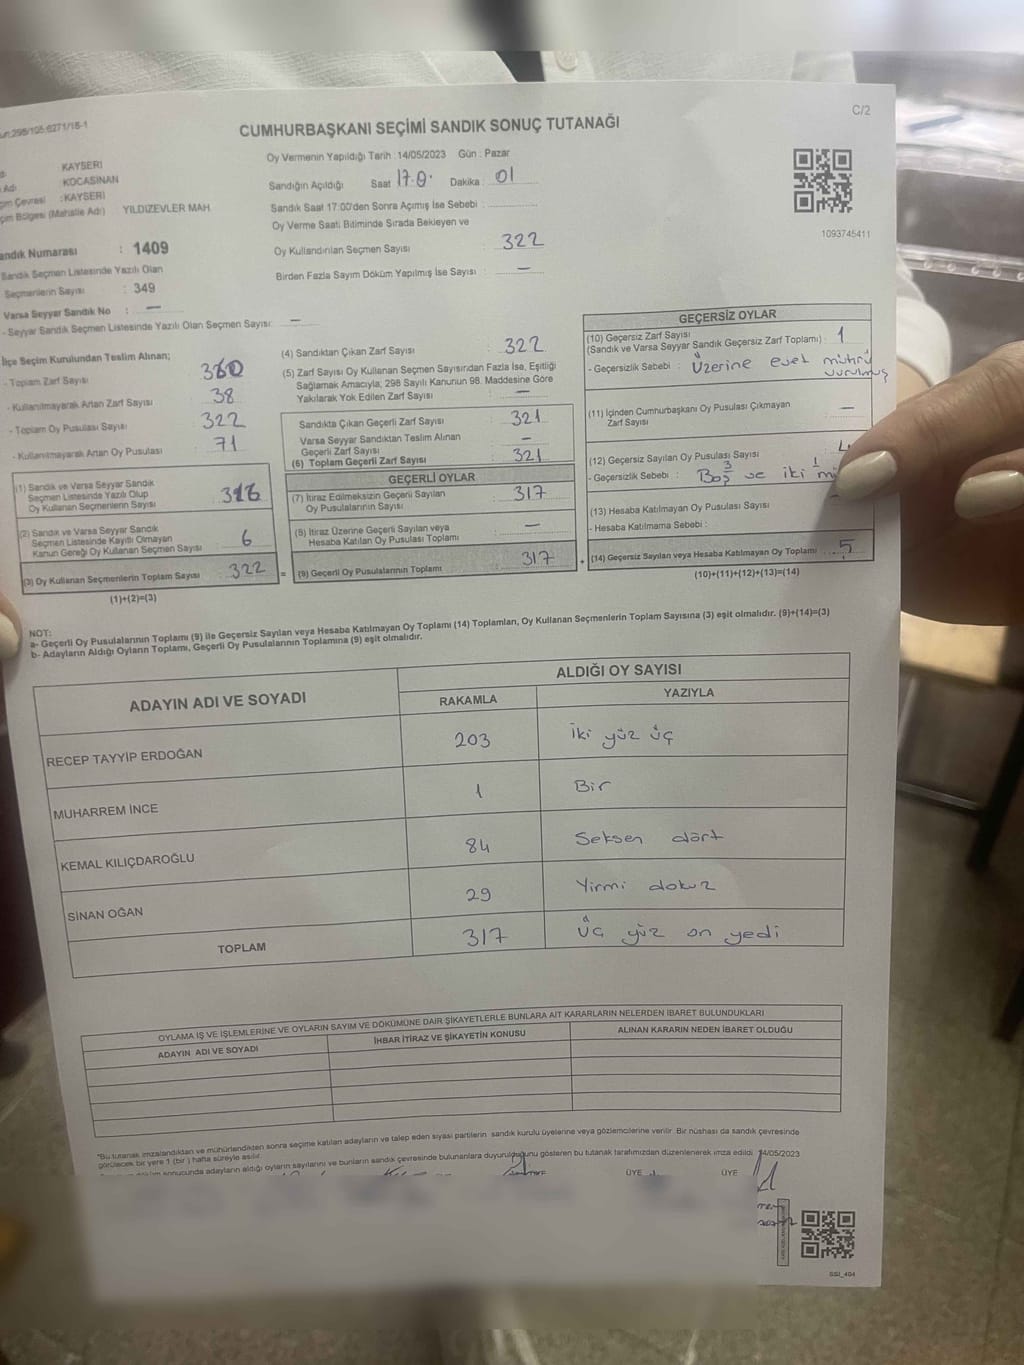 C/2
CUMHURBAŞKANI SEÇİMİ SANDIK SONUÇ TUTANAĞI
Oy Vermenin Yapıldığı Tarih : 14/05/2023 Gün : Pazar
KAYSERİ
KOCASİNAN
Çevresi : KAYSERİ
Bölgesi (Mahalle Adı) YILDIZEVLER MAH
Sandığın Açıldığı Saat Dakika : 01
Sandık Saat 17:00'den Sonra Açımış İse Sebebi :
Oy Verme Saati Bitiminde Sırada Bekleyen ve
Oy Kullandırılan Seçmen Sayısı : 322
Birden Fazla Sayım Döküm Yapılmış İse Sayısı : —
1093745411
Numarası : 1409
Sandık Seçmen Listesinde Yazılı Olan
Seçmenlerin Sayısı : 349
Varsa Seyyar Sandık No : —
- Seyyar Sandık Seçmen Listesinde Yazılı Olan Seçmen Sayısı: —
İlçe Seçim Kurulundan Teslim Alınan;
- Toplam Zarf Sayısı 360
- Kullanılmayarak Artan Zarf Sayısı 38
- Toplam Oy Pusulası Sayısı 322
- Kullanılmayarak Artan Oy Pusulası 71
(1) Sandık ve Varsa Seyyar Sandık
Seçmen Listesinde Yazılı Olup
Oy Kullanan Seçmenlerin Sayısı : 316
(2) Sandık ve Varsa Seyyar Sandık
Seçmen Listesinde Kayıtlı Olmayan
Kanun Gereği Oy Kullanan Seçmen Sayısı : 6
(3) Oy Kullanan Seçmenlerin Toplam Sayısı : 322
(1)+(2)=(3)
(4) Sandıktan Çıkan Zarf Sayısı : 322
(5) Zarf Sayısı Oy Kullanan Seçmen Sayısından Fazla İse, Eşitliği
Sağlamak Amacıyla, 298 Sayılı Kanunun 98. Maddesine Göre
Yakılarak Yok Edilen Zarf Sayısı : —
Sandıkta Çıkan Geçerli Zarf Sayısı : 321
Varsa Seyyar Sandıktan Teslim Alınan
Geçerli Zarf Sayısı : —
(6) Toplam Geçerli Zarf Sayısı : 321
GEÇERLİ OYLAR
(7) İtiraz Edilmeksizin Geçerli Sayılan
Oy Pusulalarının Sayısı : 317
(8) İtiraz Üzerine Geçerli Sayılan veya
Hesaba Katılan Oy Pusulası Toplamı : —
= (9) Geçerli Oy Pusulalarının Toplamı : 317
GEÇERSİZ OYLAR
(10) Geçersiz Zarf Sayısı
(Sandık ve Varsa Seyyar Sandık Geçersiz Zarf Toplamı) : 1
- Geçersizlik Sebebi : Üzerine evet mührü
vurulmuş
(11) İçinden Cumhurbaşkanı Oy Pusulası Çıkmayan
Zarf Sayısı : —
(12) Geçersiz Sayılan Oy Pusulası Sayısı
- Geçersizlik Sebebi : Boş 3 ve iki 1
(13) Hesaba Katılmayan Oy Pusulası Sayısı
- Hesaba Katılmama Sebebi :
+ (14) Geçersiz Sayılan veya Hesaba Katılmayan Oy Toplamı : 5
(10)+(11)+(12)+(13)=(14)
NOT:
a- Geçerli Oy Pusulalarının Toplamı (9) ile Geçersiz Sayılan veya Hesaba Katılmayan Oy Toplamı (14) Toplamları, Oy Kullanan Seçmenlerin Toplam Sayısına (3) eşit olmalıdır. (9)+(14)=(3)
b- Adayların Aldığı Oyların Toplamı, Geçerli Oy Pusulalarının Toplamına (9) eşit olmalıdır.
ADAYIN ADI VE SOYADI ALDIĞI OY SAYISI
RAKAMLA YAZIYLA
RECEP TAYYİP ERDOĞAN 203 iki yüz üç
MUHARREM İNCE 1 Bir
KEMAL KILIÇDAROĞLU 84 Seksen dört
SİNAN OĞAN 29 Yirmi dokuz
TOPLAM 317 Üç yüz on yedi
OYLAMA İŞ VE İŞLEMLERİNE VE OYLARIN SAYIM VE DÖKÜMÜNE DAİR ŞİKAYETLERLE BUNLARA AİT KARARLARIN NELERDEN İBARET BULUNDUKLARI
ADAYIN ADI VE SOYADI İHBAR İTİRAZ VE ŞİKAYETİN KONUSU ALINAN KARARIN NEDEN İBARET OLDUĞU
"Bu tutanak imzalandıktan ve mühürlendikten sonra seçime katılan adayların ve talep eden siyasi partilerin sandık kurulu üyelerine veya gözlemcilerine verilir. Bir nüshası da sandık çevresinde
görülecek bir yere 1 (bir) hafta süreyle asılır.
sonucunda adayların aldığı oyların sayılarını ve bunların sandık çevresinde bulunanlara duyurulduğunu gösteren bu tutanak tarafımızdan düzenlenerek imza edildi. 14/05/2023
ÜYE ÜYE
SSI_404